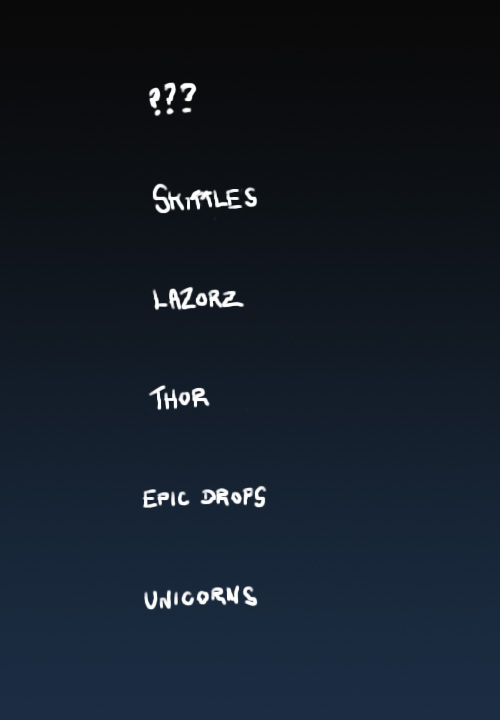 ???
SKITTLES
LAZORZ
THOR
EPIC DROPS
UNICORNS